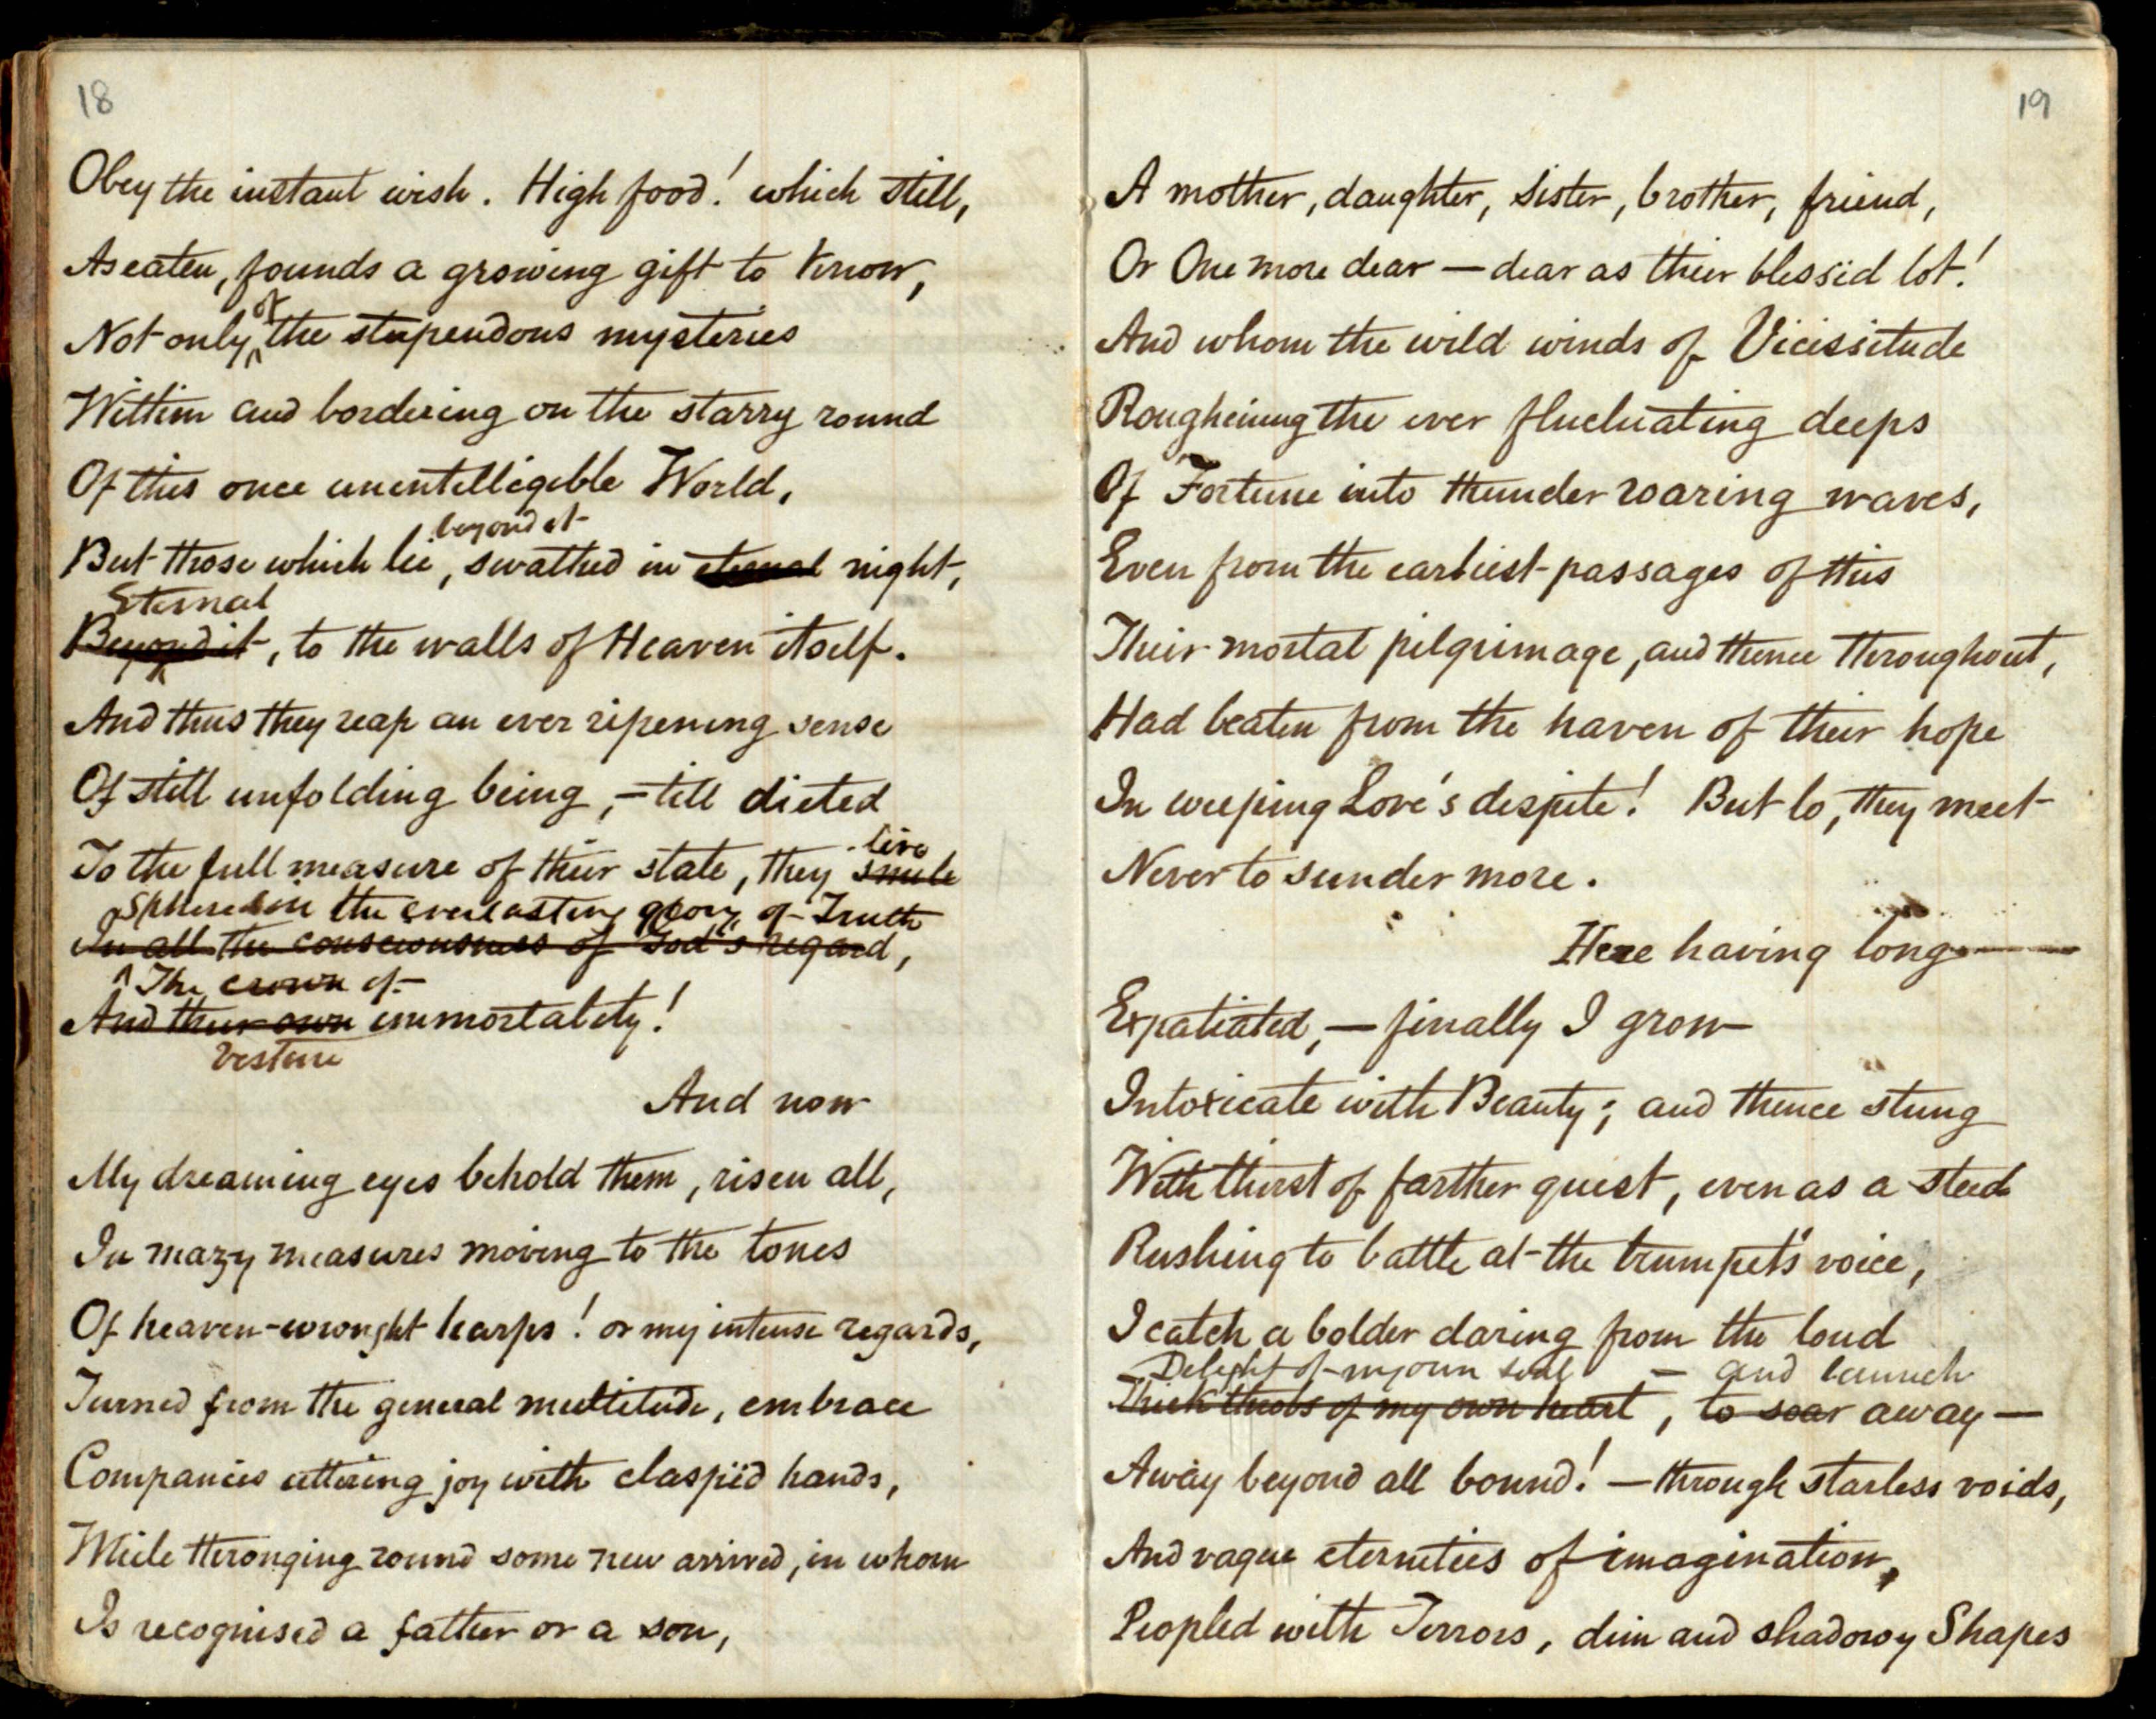 18
Obey the instant wish. High food! which still,
As eaten, founds a growing gift to know,
of
Not only, the stupendous mysteries
Within and bordering on the starry round
Of this once unintelligible World,
beyond it
But those which lie, swathed in eternal night,
Eternal
Beyond it, to the walls of Heaven itself.
And thus they reap an ever ripening sense
Of still unfolding being, – till dieted
live
To the full measure of their state, they smile
Sphered in the everlasting glory of Truth
In all the consciousness of God's regard,
The crown of
And their own immortality!
vesture
And now
My dreaming eyes behold them, risen all,
In mazy measures moving to the tones
Of heaven-wrought harps! or my intense regards,
Turned from the general multitude, embrace
Companies uttering joy with claspïd hands,
While thronging round some new arrived, in whom
Is recognised a father or a son,
19
A mother, daughter, sister, brother, friend,
Or One more dear — dear as their blessïd lot!
And whom the wild winds of Vicissitude
Rougheining the ever fluctuating deeps
Of Fortune into thunder roaring waves,
Even from the earliest passages of this
Their mortal pilgrimage, and thence throughout,
Had beaten from the haven of their hope
In weeping Love's despite! But lo, they meet
Never to sunder more.
Here having long
Expatiated, — finally I grow
Intoxicate with Beauty; and thence stung
With thirst of farther quest, even as a steed
Rushing to battle at the trumpet's voice,
I catch a bolder daring from the loud
Delight of my own soul — and launch
Thick throbs of my own heart, to soar away —
Away beyond all bound! — through starless voids,
And vague eternities of imagination,
Peopled with Terrors, dim and shadowy Shapes